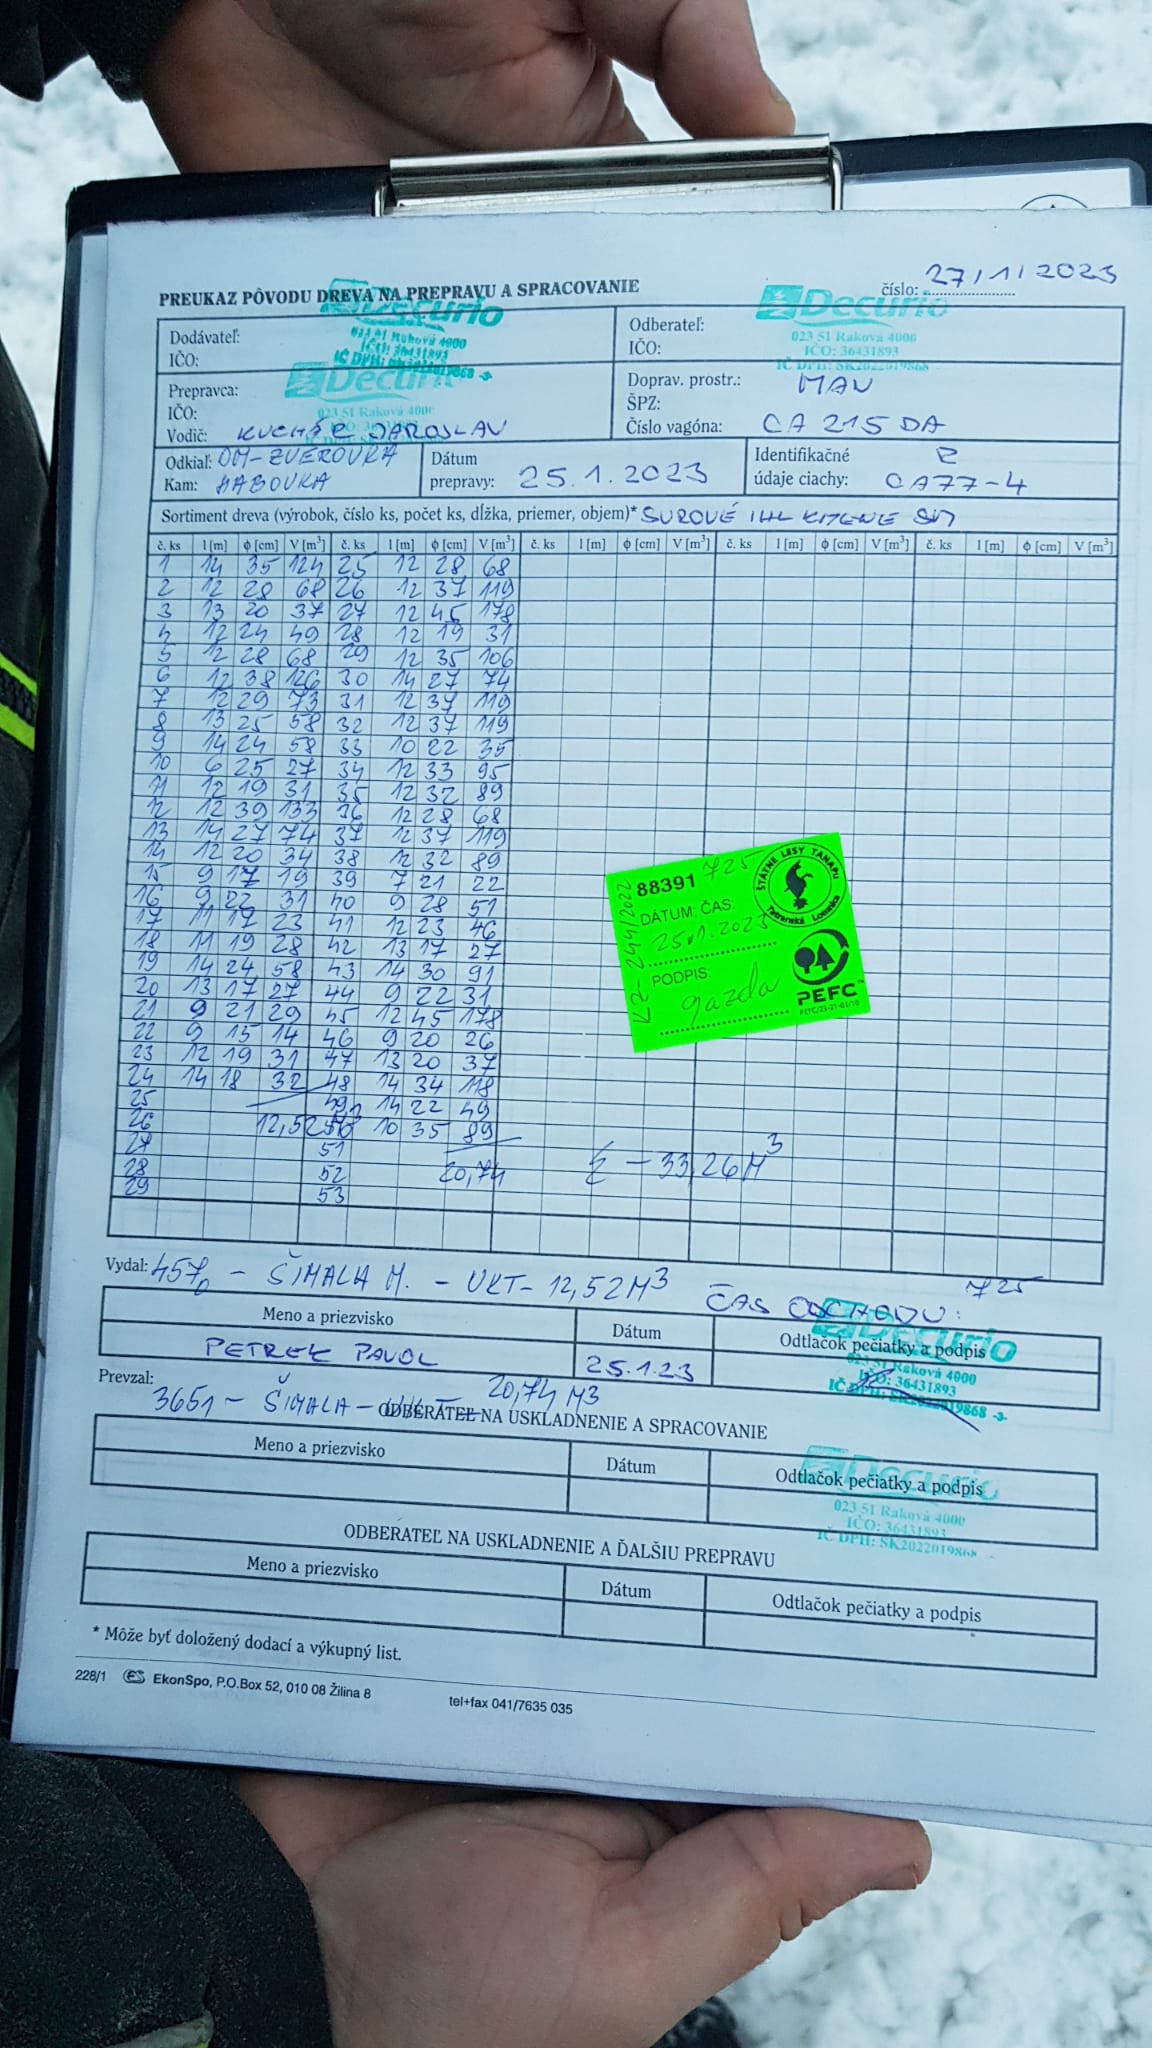 PREUKAZ PÔVODU DREVA NA PREPRAVU A SPRACOVANIE
číslo: 27/1/2023
Decurio
023 51 Raková 4000
IČO: 36431893
IČ DPH: SK2022019868 -3-
Decurio
023 51 Raková 4000
IČO: 36431893
IČ DPH: SK2022019868
Dodávateľ:
IČO:
Odberateľ:
IČO:
Decurio
023 51 Raková 4000
Prepravca:
IČO:
Vodič: KUCHÁR JAROSLAV
Doprav. prostr.: MAN
ŠPZ:
Číslo vagóna: CA 215 DA
Odkiaľ: OM-ZVEROVKA
Kam: HABOVKA
Dátum prepravy: 25.1.2023
Identifikačné údaje ciachy: CA77-4
Sortiment dreva (výrobok, číslo ks, počet ks, dĺžka, priemer, objem)* SUROVÉ
č. ks l [m] ϕ [cm] V [m³] č. ks l [m] ϕ [cm] V [m³] č. ks l [m] ϕ [cm] V [m³] č. ks l [m] ϕ [cm] V [m³] č. ks l [m] ϕ [cm] V [m³]
1 14 35 124 25 12 28 68
2 12 28 68 26 12 37 119
3 13 20 37 27 12 45 178
4 12 24 49 28 12 19 31
5 12 28 68 29 12 35 106
6 12 38 126 30 14 27 74
7 12 29 73 31 12 37 119
8 13 25 58 32 12 37 119
9 14 24 58 33 10 22 35
10 6 25 27 34 12 33 95
11 12 19 31 35 12 32 89
12 12 39 133 36 12 28 68
13 14 27 74 37 12 37 119
14 12 20 34 38 12 32 89
15 9 17 19 39 7 21 22
16 9 22 31 40 9 28 51
17 11 17 23 41 12 23 46
18 11 19 28 42 13 17 27
19 14 24 58 43 14 30 91
20 13 17 27 44 9 22 31
21 9 21 29 45 12 45 178
22 9 15 14 46 9 20 26
23 12 19 31 47 13 20 37
24 14 18 32 48 14 34 118
25 49 14 22 49
26 12,52 50 10 35 89
27 51
28 52 20,74 Σ - 33,26 M³
29 53
88391 725
DÁTUM; ČAS:
25.1.2023
PODPIS:
gazda
KZ-244/2022
ŠTÁTNE LESY TANAPU
Tatranská Lomnica
PEFC™
PEFC/23-21-03/10
Vydal: 457 - ŠIMALA M. - VKT - 12,52 M³ ČAS ODCHODU: 725
Meno a priezvisko
Dátum
Odtlačok pečiatky a podpis
PETREK PAVOL
25.1.23
Decurio
023 51 Raková 4000
IČO: 36431893
IČ DPH: SK2022019868 -3-
Prevzal: 3651 - ŠIMALA - 20,74 M3
ODBERATEĽ NA USKLADNENIE A SPRACOVANIE
Meno a priezvisko
Dátum
Odtlačok pečiatky a podpis
Decurio
023 51 Raková 4000
IČO: 36431893
IČ DPH: SK2022019868
ODBERATEĽ NA USKLADNENIE A ĎALŠIU PREPRAVU
Meno a priezvisko
Dátum
Odtlačok pečiatky a podpis
* Môže byť doložený dodací a výkupný list.
228/1 ES EkonSpo, P.O.Box 52, 010 08 Žilina 8 tel+fax 041/7635 035